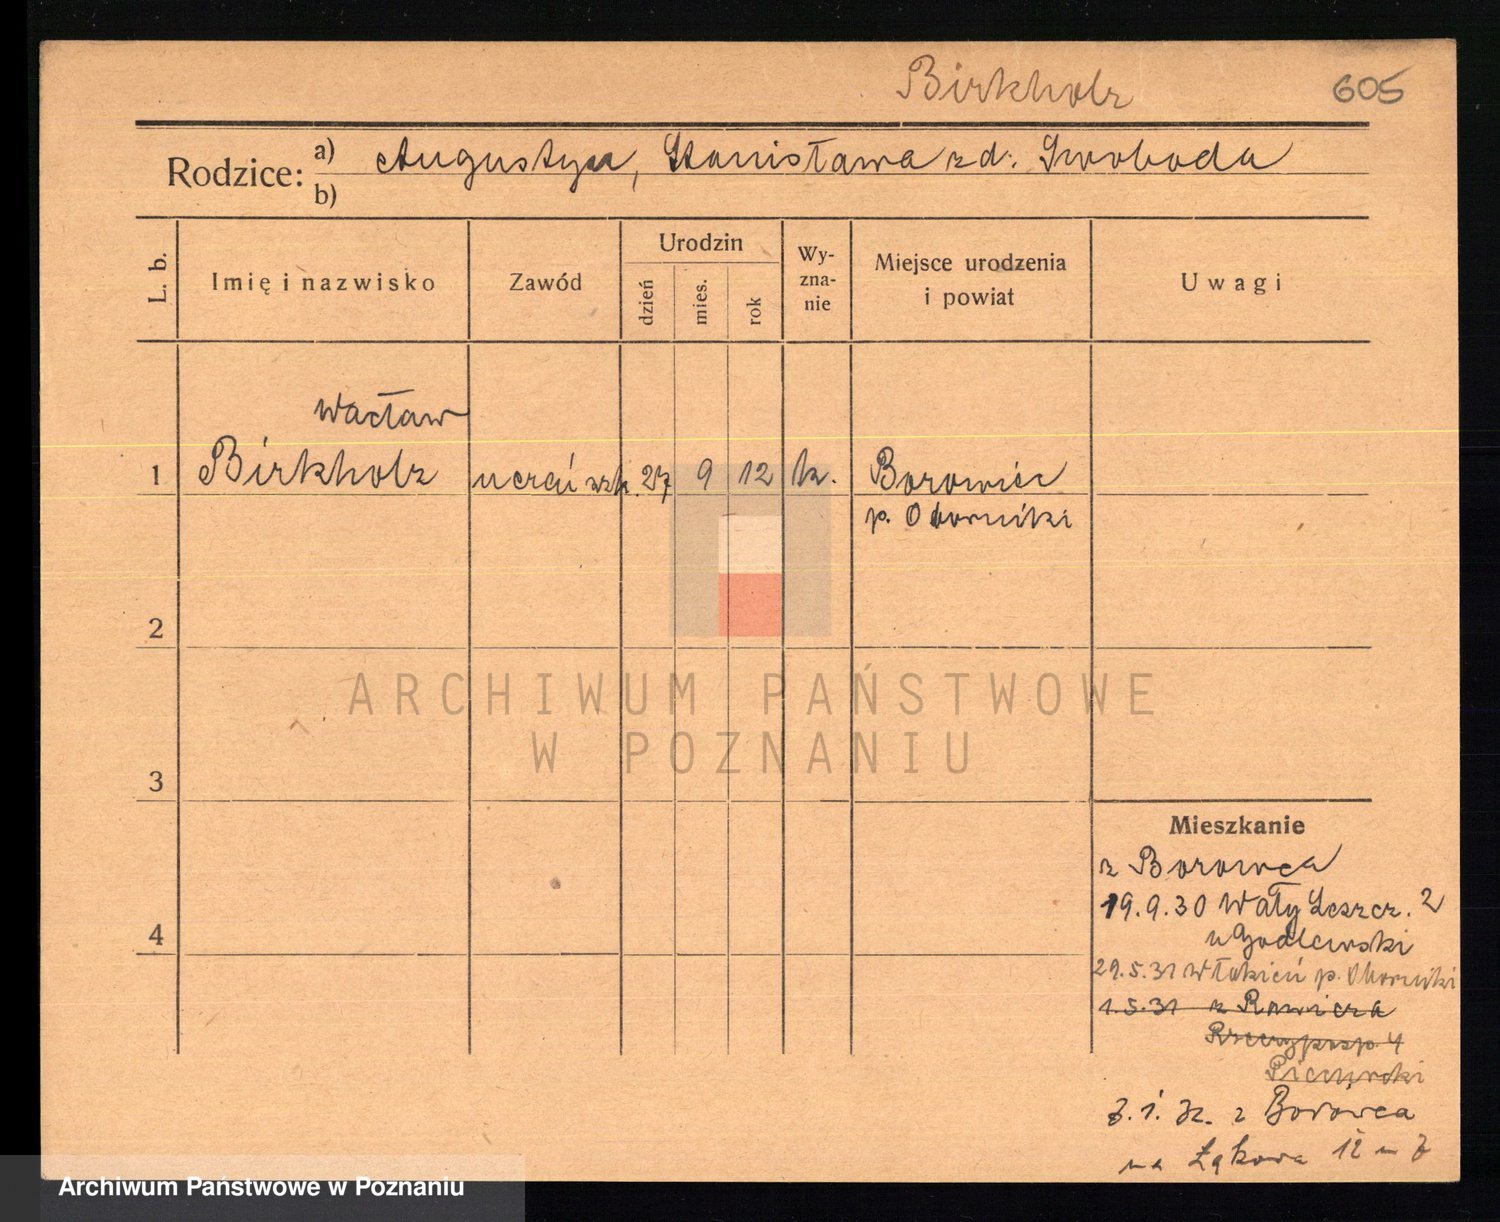 Birkholz 605
Rodzice: a) Augustyn, Stanisława zd. Swoboda
b)
L. b.
Imię i nazwisko
Zawód
Urodzin
dzień
mies.
rok
Wy-
zna-
nie
Miejsce urodzenia
i powiat
Uwagi
Wacław
1 Birkholz uczeń 27 9 12 k. Borowiec
p. Oborniki
2
3
4
ARCHIWUM PAŃSTWOWE
W POZNANIU
Mieszkanie
z Borowca
19.9.30 Wały Leszcz. 2
u Godlewski
29.5.31 Włókień p. Oborniki
1.5.31 z Rawicza
Rzeczyposp. 4
z Borowca
na Łąkowa 12 m 7
Archiwum Państwowe w Poznaniu